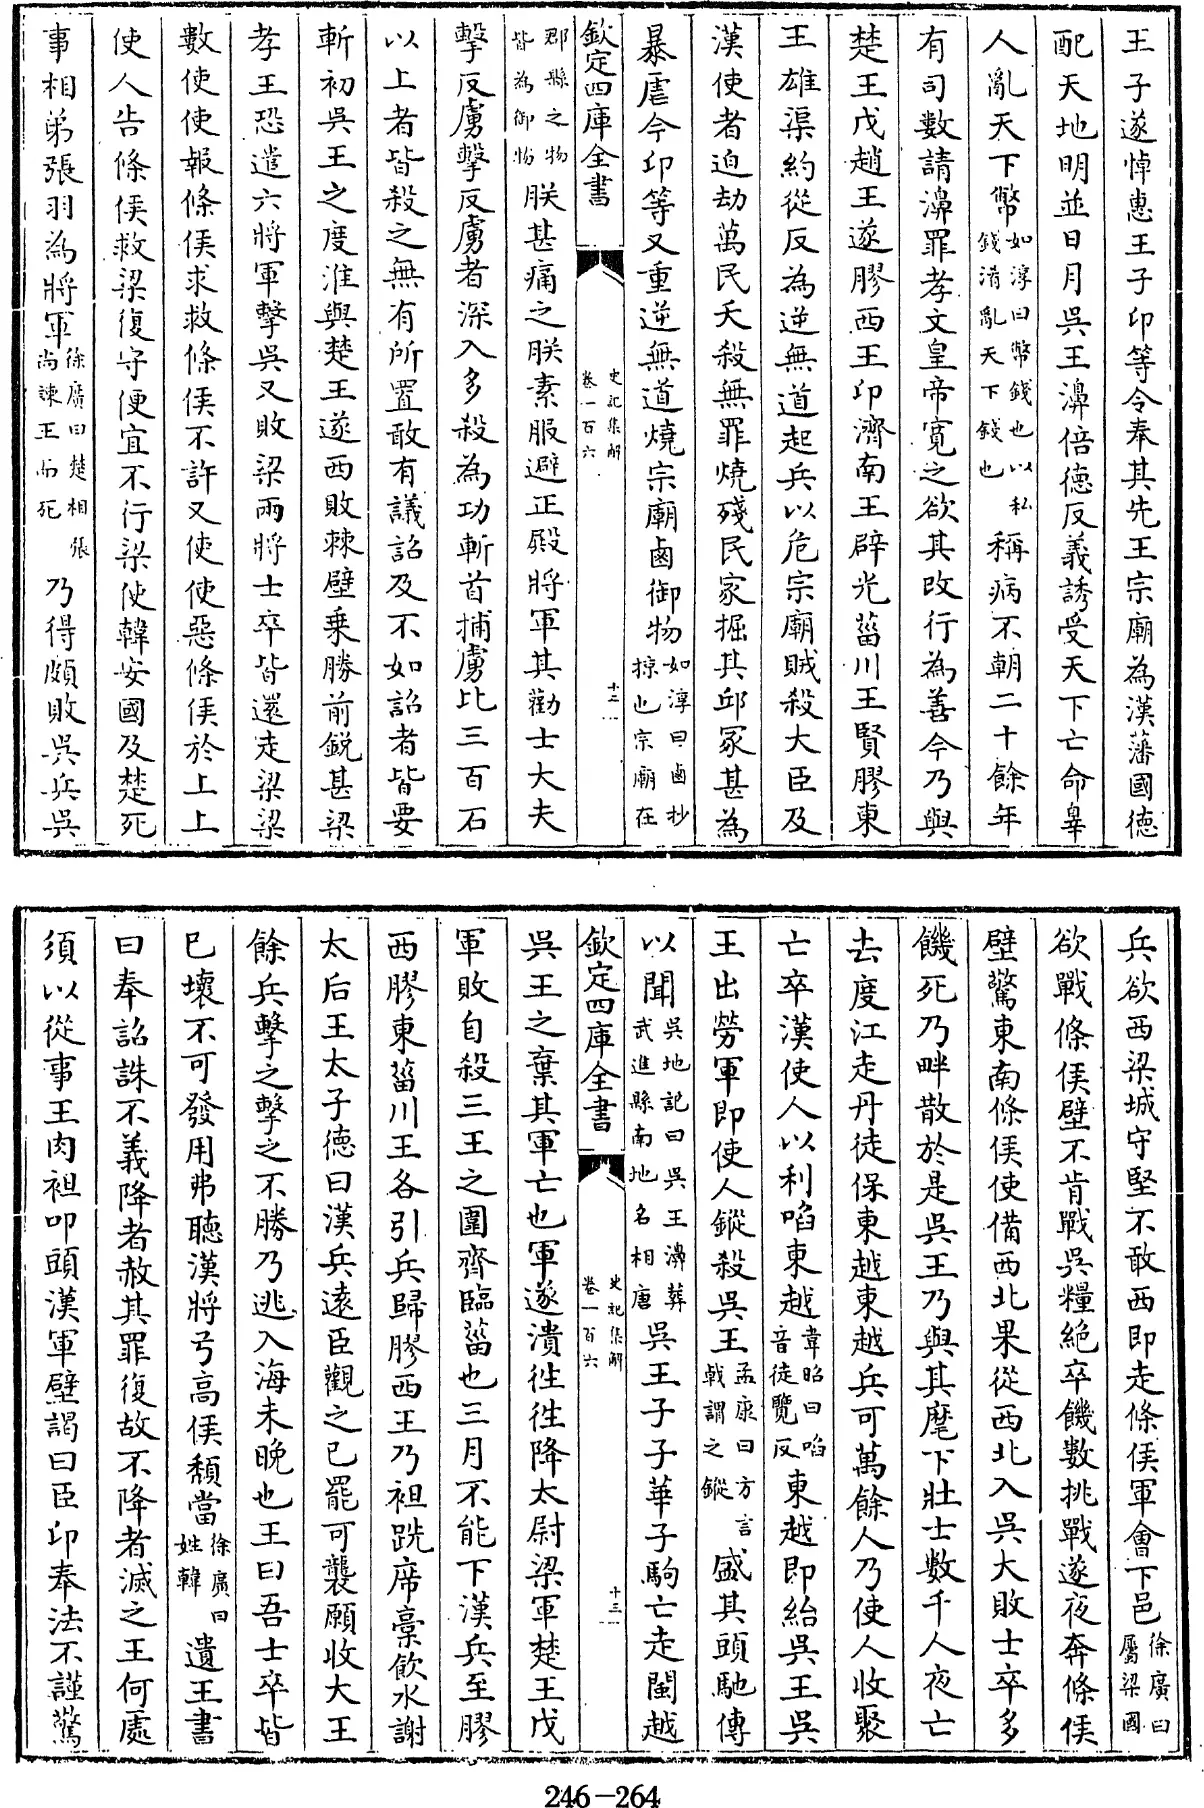 王子遂悼惠王子卬等令奉其先王宗廟為漢藩國德
配天地明並日月吳王濞倍德反義誘受天下亡命辠
人亂天下幣如淳曰幣錢也以私錢淆亂天下錢也稱病不朝二十餘年
有司數請濞罪孝文皇帝寬之欲其改行為善今乃與
楚王戊趙王遂膠西王卬濟南王辟光菑川王賢膠東
王雄渠約從反為逆無道起兵以危宗廟賊殺大臣及
漢使者迫劫萬民夭殺無罪燒殘民家掘其邱冢甚為
暴虐今卬等又重逆無道燒宗廟鹵御物如淳曰鹵抄掠也宗廟在
欽定四庫全書
史記集解
卷一百六
十二
郡縣之物皆為御物朕甚痛之朕素服避正殿將軍其勸士大夫
擊反虜擊反虜者深入多殺為功斬首捕虜比三百石
以上者皆殺之無有所置敢有議詔及不如詔者皆要
斬初吳王之度淮與楚王遂西敗棘壁乗勝前銳甚梁
孝王恐遣六將軍擊吳又敗梁兩將士卒皆還走梁梁
數使使報條侯求救條侯不許又使使惡條侯於上上
使人告條侯救梁復守便宜不行梁使韓安國及楚死
事相弟張羽為將軍徐廣曰楚相張尚諫王而死乃得頗敗吳兵吳
兵欲西梁城守堅不敢西即走條侯軍會下邑徐廣曰屬梁國
欲戰條侯壁不肯戰吳糧絶卒饑數挑戰遂夜奔條侯
壁驚東南條侯使備西北果從西北入吳大敗士卒多
饑死乃畔散於是吳王乃與其麾下壯士數千人夜亡
去度江走丹徒保東越東越兵可萬餘人乃使人收聚
亡卒漢使人以利啗東越韋昭曰啗音徒覽反東越即紿吳王吳
王出勞軍即使人鏦殺吳王孟康曰方言戟謂之鏦盛其頭馳傳
以聞吳地記曰吳王濞葬武進縣南地名相唐吳王子子華子駒亡走閩越
欽定四庫全書
史記集解
卷一百六
十三
吳王之棄其軍亡也軍遂潰徃徃降太尉梁軍楚王戊
軍敗自殺三王之圍齊臨菑也三月不能下漢兵至膠
西膠東菑川王各引兵歸膠西王乃袒跣席稾飲水謝
太后王太子德曰漢兵遠臣觀之已罷可襲願收大王
餘兵擊之擊之不勝乃逃入海未晚也王曰吾士卒皆
已壞不可發用弗聽漢將弓高侯頹當徐廣曰姓韓遺王書
曰奉詔誅不義降者赦其罪復故不降者滅之王何處
須以從事王肉袒叩頭漢軍壁謁曰臣卬奉法不謹驚
246－264